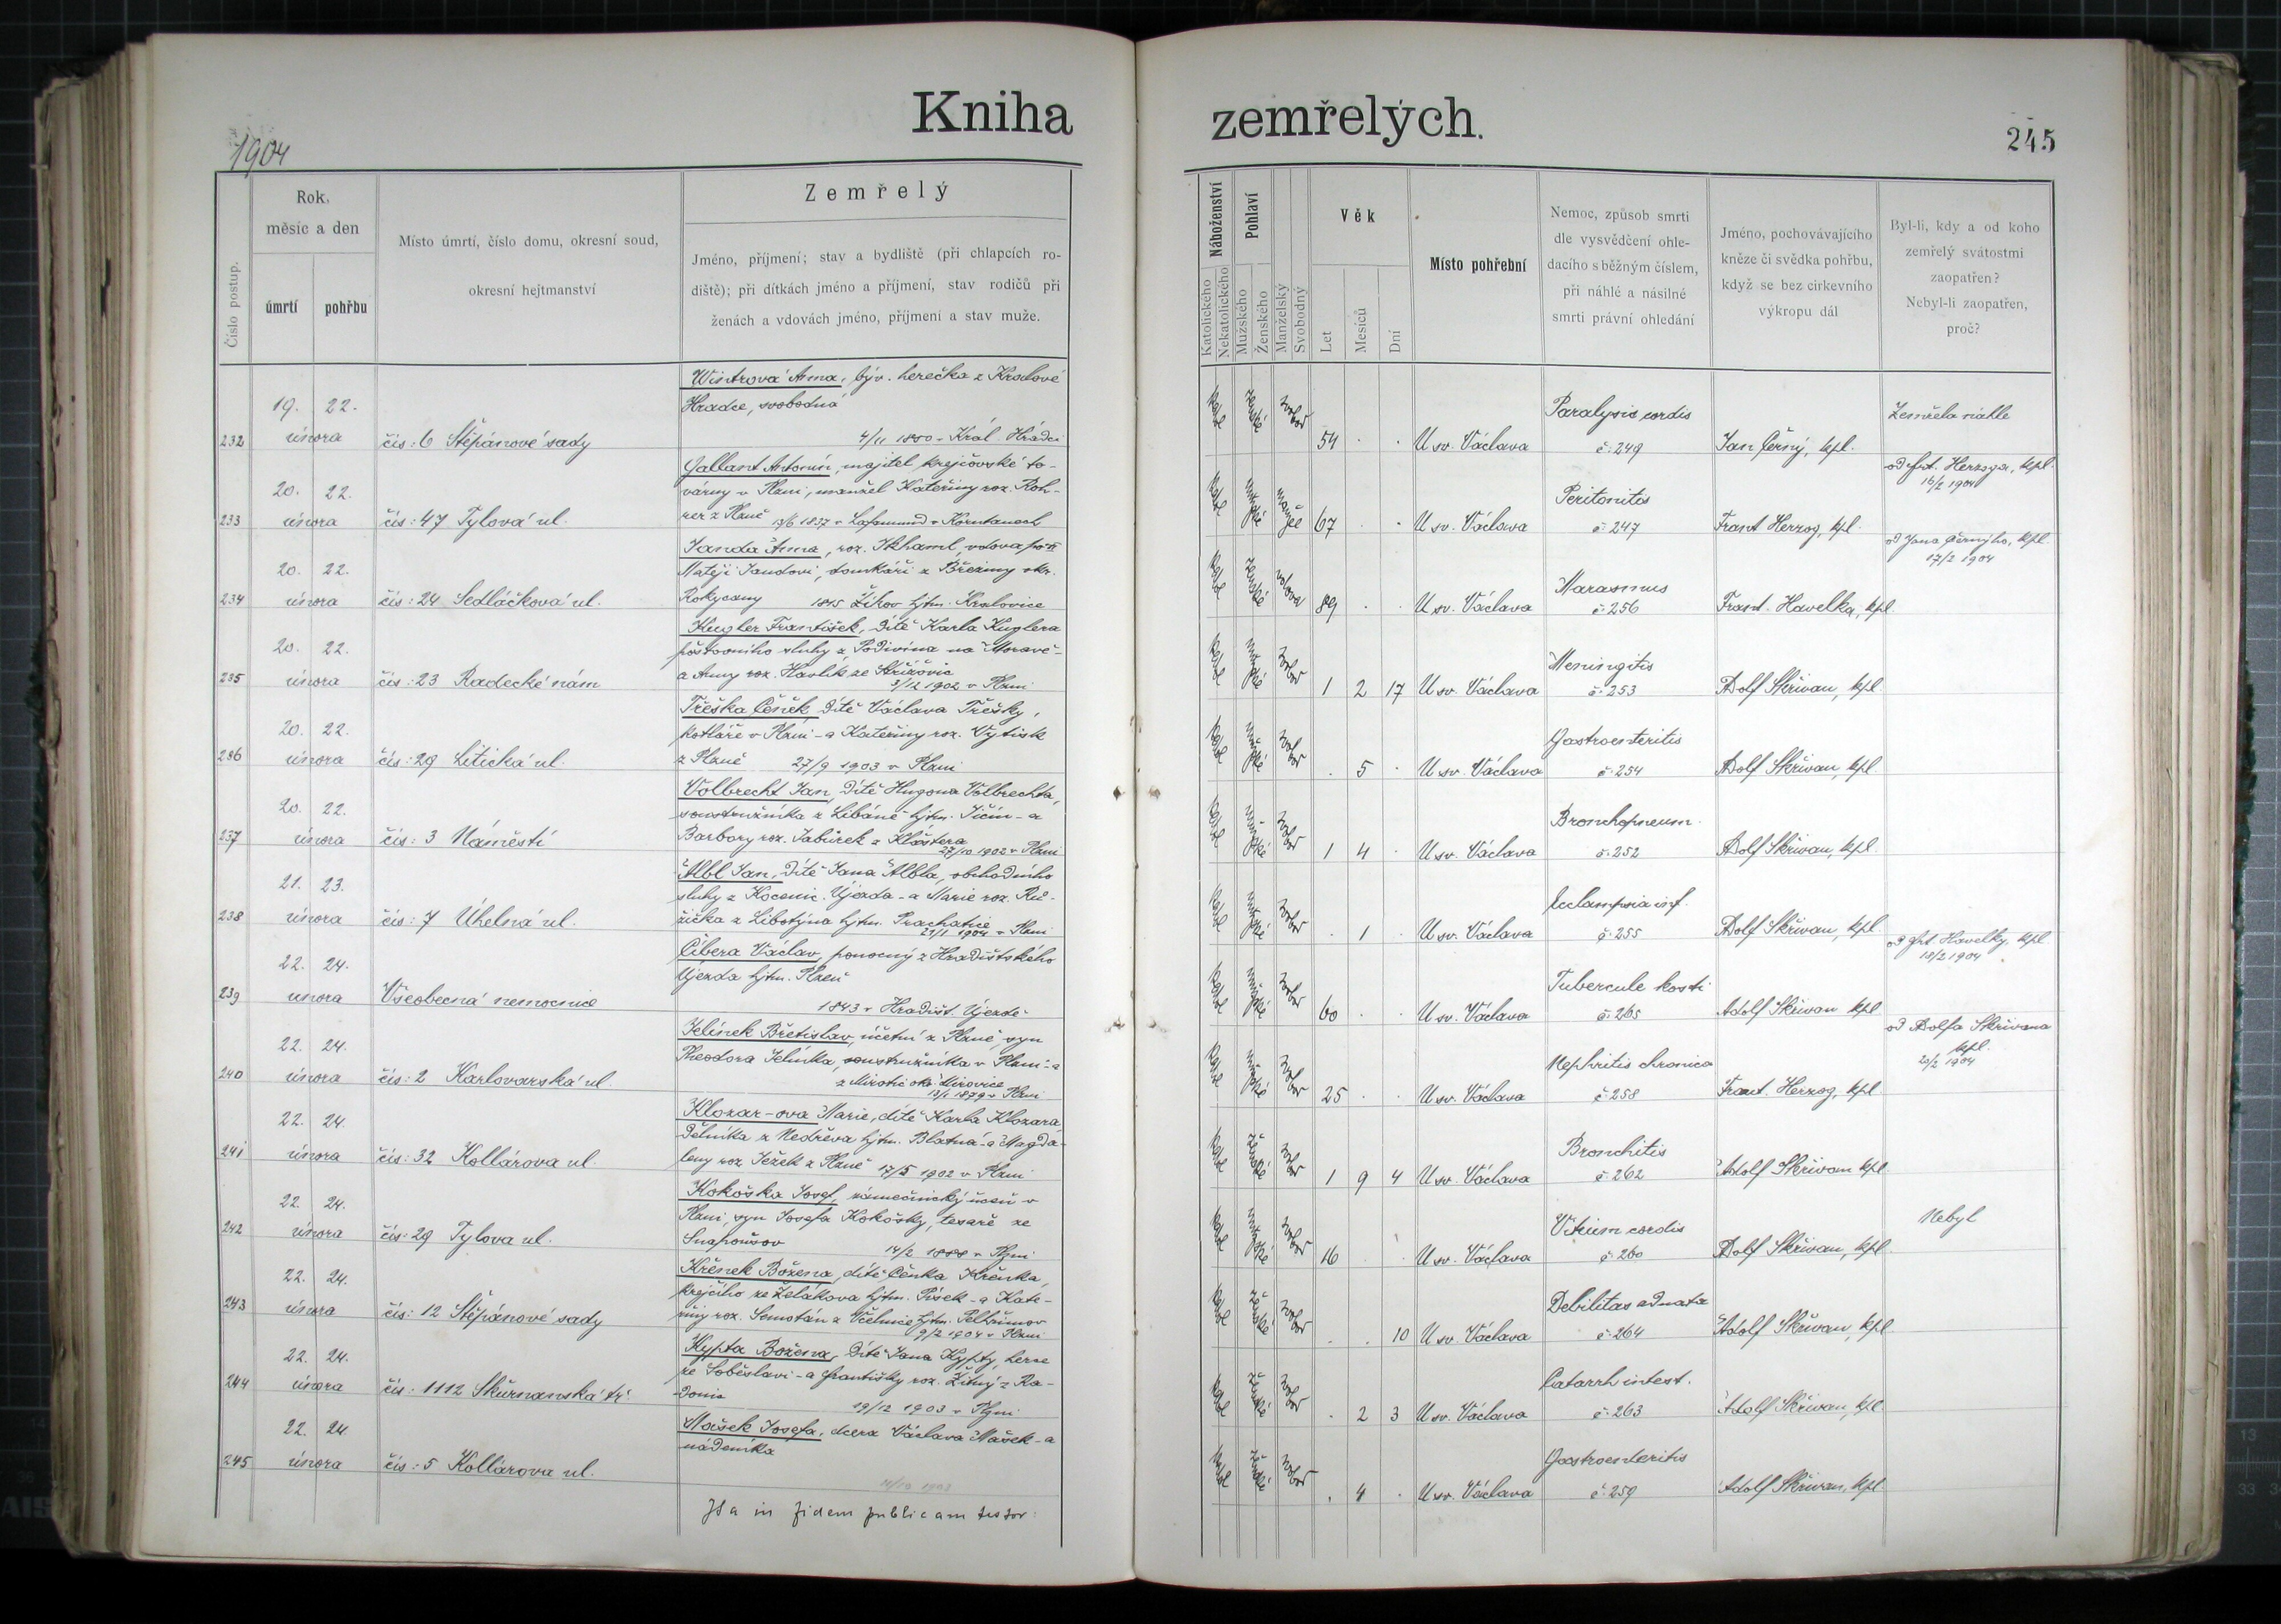 Kniha zemřelých.
1904
245
Číslo postup.
Rok, měsíc a den
úmrtí
pohřbu
Místo úmrtí, číslo domu, okresní soud,
okresní hejtmanství
Zemřelý
Jméno, příjmení; stav a bydliště (při chlapcích ro-
diště); při dítkách jméno a příjmení, stav rodičů při
ženách a vdovách jméno, příjmení a stav muže.
Náboženství
Katolického
Nekatolického
Pohlaví
Mužského
Ženského
Manželský
Svobodný
Věk
Let
Měsíců
Dní
Místo pohřební
Nemoc, způsob smrti
dle vysvědčení ohle-
dacího s běžným číslem,
při náhlé a násilné
smrti právní ohledání
Jméno, pochovávajícího
kněze či svědka pohřbu,
když se bez církevního
výkropu dál
Byl-li, kdy a od koho
zemřelý svátostmi
zaopatřen?
Nebyl-li zaopatřen,
proč?
232 19. 22. února čís: 6 Štěpánové sady
Wintrová Anna, býv. herečka z Králové
Hradce, svobodná
4/11 1850 v Král. Hradci
54 U sv. Václava Paralysis cordis č. 249 Jan Černý, kpl. Zemřela náhle
233 20. 22. února čís: 47 Tylová ul.
Gallant Antonín, majitel krejčovské to-
várny v Plzni, manžel Kateřiny roz. Roh-
rer z Plzně 13/6 1837 v Korutanech
67 U sv. Václava Peritonitis č. 247 Frant. Herzog, kpl. od frt. Herzoga, kpl. 16/2 1904
234 20. 22. února čís: 24 Sedláčková ul.
Janda Anna, roz. vdova po
Matěji Jandovi, domkáři z Březiny okr.
Rokycany 1815 Žikov hjtm. Kralovice
vdova 89 U sv. Václava Marasmus č. 256 Frant. Havelka, kpl. od Jana Černýho, kpl. 17/2 1904
235 20. 22. února čís: 23 Radecké nám
Kugler František, dítě Karla Kuglera
poštovního sluhy z Podivína na Moravě -
a Anny roz. Havlík ze Střížovic
3/12 1902 v Plzni
1 2 17 U sv. Václava Meningitis č. 253 Adolf Skřivan, kpl.
236 20. 22. února čís: 29 Litická ul.
Třeška Čeněk, dítě Václava Třešky,
kotláře v Plzni - a Kateřiny roz. Vytisk
z Plzně 27/9 1903 v Plzni
. 5 . U sv. Václava Gastroenteritis č. 254 Adolf Skřivan, kpl.
237 20. 22. února čís: 3 Náměstí
Volbrecht Jan, dítě Hugona Volbrechta,
soustružníka z Libáně hjtm. Jičín - a
Barbory roz. Jabůrek z Kláštera
27/10 1902 v Plzni
1 4 . U sv. Václava Bronchopneum. č. 252 Adolf Skřivan, kpl.
238 21. 23. února čís: 7 Úhelná ul.
Albl Jan, dítě Jana Albla, obchodního
sluhy z Újezda - a Marie roz. Rů-
žička z Libotýna hjtm. Prachatice
21/1 1904 v Plzni
. 1 . U sv. Václava Eclampsia inf. č. 255 Adolf Skřivan, kpl.
239 22. 24. února Všeobecná nemocnice
Čibera Václav, ponocný z Hradištského
Újezda hjtm. Plzeň
1843 v Hradišt. Újezdě
60 U sv. Václava Tubercule kosti č. 265 Adolf Skřivan kpl. od frt. Havelky, kpl. 18/2 1904
240 22. 24. února čís: 2 Karlovarská ul
Jelínek Břetislav, účetní z Plzně, syn
Theodora Jelínka, soustružníka v Plzni - a
z Mirotic okr. Mirovice
13/1 1879 v Plzni
25 U sv. Václava Nephritis chronica č. 258 Frant. Herzog, kpl. od Adolfa Skřivana kpl. 20/2 1904
241 22. 24. února čís: 32 Kollárova ul.
Klozar-ova Marie, dítě Karla Klozara
dělníka z hjtm. Blatná - a Magda-
leny roz. Ježek z Plzně 17/5 1902 v Plzni
1 9 4 U sv. Václava Bronchitis č. 262 Adolf Skřivan kpl.
242 22. 24. února čís: 29 Tylova ul.
Kokoška Josef, zámečnický učeň v
Plzni, syn Josefa Kokošky, tesaře ze
Snapoušov 14/2 1888 v Plzni
16 U sv. Václava Vitium cordis č. 260 Adolf Skřivan, kpl. Nebyl
243 22. 24. února čís: 12 Štěpánové sady
Křenek Božena, dítě Čeňka Křenka,
krejčího ze hjtm. Písek - a Kate-
řiny roz. Semotán z Včelnice hjtm. Pelhřimov
9/2 1904 v Plzni
. . 10 U sv. Václava Debilitas adnata č. 264 Adolf Skřivan, kpl
244 22. 24. února čís: 1112 Skurnanská tř.
Kypta Božena, dítě Jana Kypty, herce
ze Soběslavi - a Františky roz. Žitný z Ra-
donic
19/12 1903 v Plzni
. 2 3 U sv. Václava Catarrh intest. č. 263 Adolf Skřivan, kpl.
245 22. 24. února čís: 5 Kollárova ul.
Mašek Josefa, dcera Václava Mašek - a
nádeníka
. 4 . U sv. Václava Gastroenteritis č. 259 Adolf Skřivan, kpl.
Ita in fidem publicam testor: